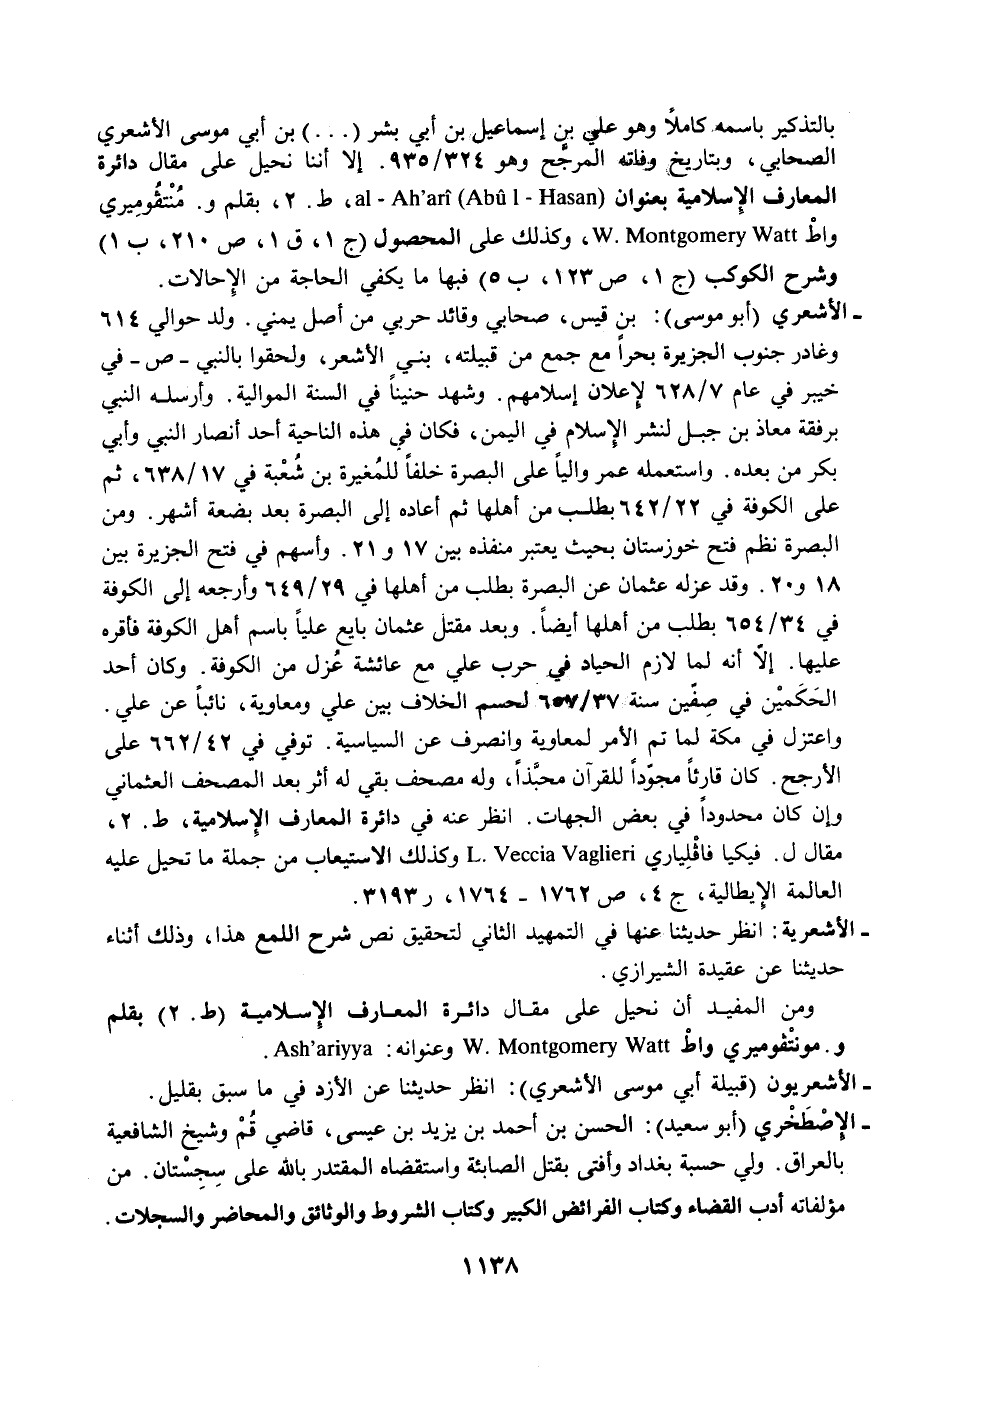 بالتذكير باسمه كاملاً وهو علي بن إسماعيل بن أبي بشر (...) بن أبي موسى الأشعري
الصحابي، وبتاريخ وفاته المرجّح وهو ٩٣٥/٣٢٤. إلا أننا نحيل على مقال دائرة
المعارف الإسلامية بعنوان al - Ah'arî (Abû l - Hasan)، ط. ٢، بقلم و. مُنْتقُوميري
واطْ W. Montgomery Watt، وكذلك على المحصول (ج ١، ق ١، ص ٢١٠، ب ١)
وشرح الكوكب (ج ١، ص ١٢٣، ب ٥) فبها ما يكفي الحاجة من الإحالات.
ـ الأشعري (أبو موسى): بن قيس، صحابي وقائد حربي من أصل يمني. ولد حوالي ٦١٤
وغادر جنوب الجزيرة بحراً مع جمع من قبيلته، بني الأشعر، ولحقوا بالنبي ـ ص ـ في
خيبر في عام ٦٢٨/٧ لإعلان إسلامهم. وشهد حنيناً في السنة الموالية. وأرسله النبي
برفقة معاذ بن جبل لنشر الإسلام في اليمن، فكان في هذه الناحية أحد أنصار النبي وأبي
بكر من بعده. واستعمله عمر والياً على البصرة خلفاً للمُغيرة بن شُعْبة في ٦٣٨/١٧، ثم
على الكوفة في ٦٤٢/٢٢ بطلب من أهلها ثم أعاده إلى البصرة بعد بضعة أشهر. ومن
البصرة نظم فتح خوزستان بحيث يعتبر منفذه بين ١٧ و٢١. وأسهم في فتح الجزيرة بين
١٨ و٢٠. وقد عزله عثمان عن البصرة بطلب من أهلها في ٦٤٩/٢٩ وأرجعه إلى الكوفة
في ٦٥٤/٣٤ بطلب من أهلها أيضاً. وبعد مقتل عثمان بايع علياً باسم أهل الكوفة فأقره
عليها. إلاّ أنه لما لازم الحياد في حرب علي مع عائشة عُزل من الكوفة. وكان أحد
الحَكَميْن في صِفّين سنة ٦٥٧/٣٧ لحسم الخلاف بين علي ومعاوية، نائباً عن علي.
واعتزل في مكة لما تم الأمر لمعاوية وانصرف عن السياسية. توفي في ٦٦٢/٤٢ على
الأرجح. كان قارئاً مجوّداً للقرآن محبَّذاً، وله مصحف بقي له أثر بعد المصحف العثماني
وإن كان محدوداً في بعض الجهات. انظر عنه في دائرة المعارف الإسلامية، ط. ٢،
مقال ل. فيكيا فاڤْلِياري L. Veccia Vaglieri وكذلك الاستيعاب من جملة ما تحيل عليه
العالمة الإيطالية، ج ٤، ص ١٧٦٢ ـ ١٧٦٤، ر ٣١٩٣.
ـ الأشعرية: انظر حديثنا عنها في التمهيد الثاني لتحقيق نص شرح اللمع هذا، وذلك أثناء
حديثنا عن عقيدة الشيرازي.
ومن المفيد أن نحيل على مقال دائرة المعارف الإسلامية (ط. ٢) بقلم
و. مونْتڤوميري واطْ W. Montgomery Watt وعنوانه: Ash'ariyya.
ـ الأشعريون (قبيلة أبي موسى الأشعري): انظر حديثنا عن الأزد في ما سبق بقليل.
ـ الإصْطَخْري (أبو سعيد): الحسن بن أحمد بن يزيد بن عيسى، قاضي قُمْ وشيخ الشافعية
بالعراق. ولي حسبة بغداد وأفتى بقتل الصابئة واستقضاه المقتدر بالله على سِجِسْتان. من
مؤلفاته أدب القضاء وكتاب الفرائض الكبير وكتاب الشروط والوثائق والمحاضر والسجلات.
١١٣٨